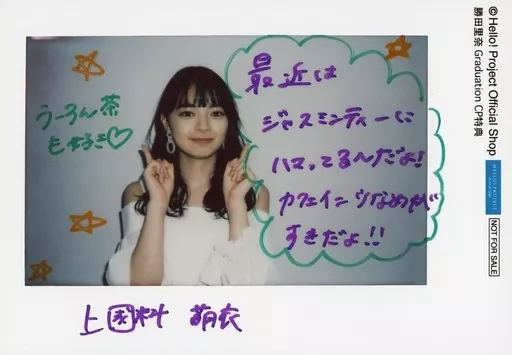 うーろん茶
も好き♡
最近は
ジャスミンティーに
ハマってるんだよ!
カフェインツなめが
すきだよ!!
上國料 萌衣
© Hello! Project Official Shop
勝田里奈 Graduation CP特典
HELLO! PROJECT
NOT FOR SALE